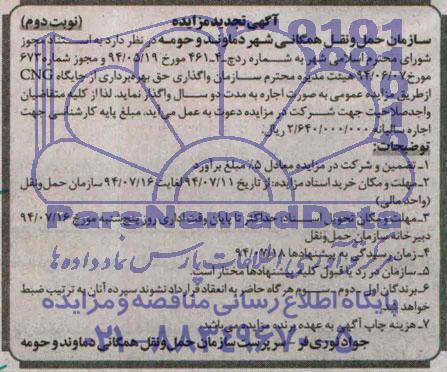 آگهی تجدید مزایده (نوبت دوم)
سازمان حمل ونقل همگانی شهر دماوند و حومه در نظر دارد به استناد مجوز
شورای محترم اسلامی شهر به شماره ردچ-۴-۴۶۱ مورخ ۹۴/۰۵/۱۹ و مجوز شماره ۶۷۳
مورخ ۹۴/۰۶/۰۷ هیئت مدیره محترم سازمان واگذاری حق بهره‌برداری از جایگاه CNG
از طریق مزایده عمومی به صورت اجاره به مدت دو سال واگذار نماید. لذا از کلیه متقاضیان
واجد صلاحیت جهت شرکت در مزایده دعوت به عمل می‌آید. مبلغ پایه کارشناسی جهت
اجاره سالیانه ۲/۶۴۰/۰۰۰/۰۰۰ ریال.
توضیحات:
۱- تضمین و شرکت در مزایده معادل ۵٪ مبلغ برآورد
۲- مهلت و مکان خرید اسناد مزایده: از تاریخ ۹۴/۰۷/۱۱ لغایت ۹۴/۰۷/۱۶ سازمان حمل ونقل
(واحد مالی)
۳- مهلت و مکان تحویل اسناد: حداکثر تا پایان وقت اداری روز پنج‌شنبه مورخ ۹۴/۰۷/۱۶
دبیرخانه سازمان حمل ونقل
۴- زمان رسیدگی به پیشنهادها ۹۴/۰۷/۱۸
۵- سازمان در رد یا قبول کلیه پیشنهادها مختار است.
۶- برندگان اول - دوم - سوم هرگاه حاضر به انعقاد قرارداد نشوند سپرده آنان به ترتیب ضبط
خواهد شد.
۷- هزینه چاپ آگهی به عهده برنده مزایده می‌باشد.
جواد نوری فر سرپرست سازمان حمل ونقل همگانی دماوند و حومه
ParsNamadData
اطلاعات پارس نماد داده ها
پایگاه اطلاع رسانی مناقصه و مزایده
۰۲۱-۸۸۳۴۹۶۷۰-۵